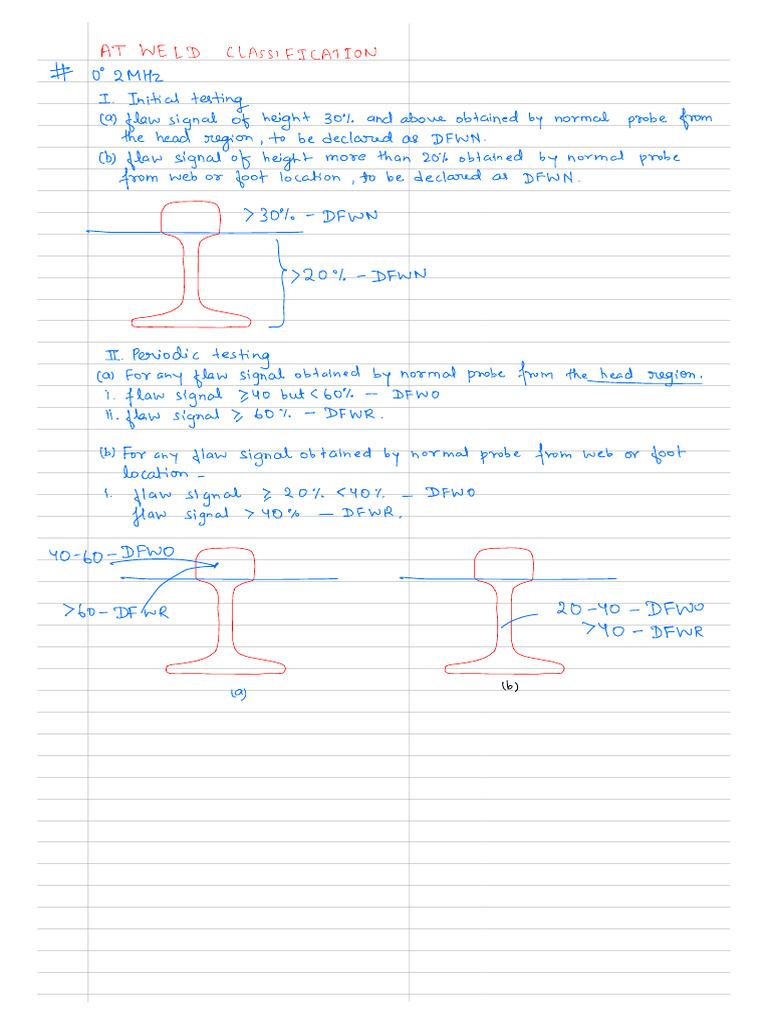 AT WELD CLASSIFICATION
# 0° 2MHz
I. Initial testing
(a) flaw signal of height 30% and above obtained by normal probe from
the head region, to be declared as DFWN.
(b) flaw signal of height more than 20% obtained by normal probe
from web or foot location, to be declared as DFWN.
>30% - DFWN
>20% - DFWN
II. Periodic testing
(a) For any flaw signal obtained by normal probe from the head region.
i. flaw signal ≥40 but <60% - DFWO
ii. flaw signal ≥ 60% - DFWR.
(b) For any flaw signal obtained by normal probe from web or foot
location -
i. flaw signal ≥ 20% <40% - DFWO
flaw signal >40% - DFWR.
40-60-DFWO
>60-DFWR
20-40-DFWO
>40-DFWR
(a)
(b)